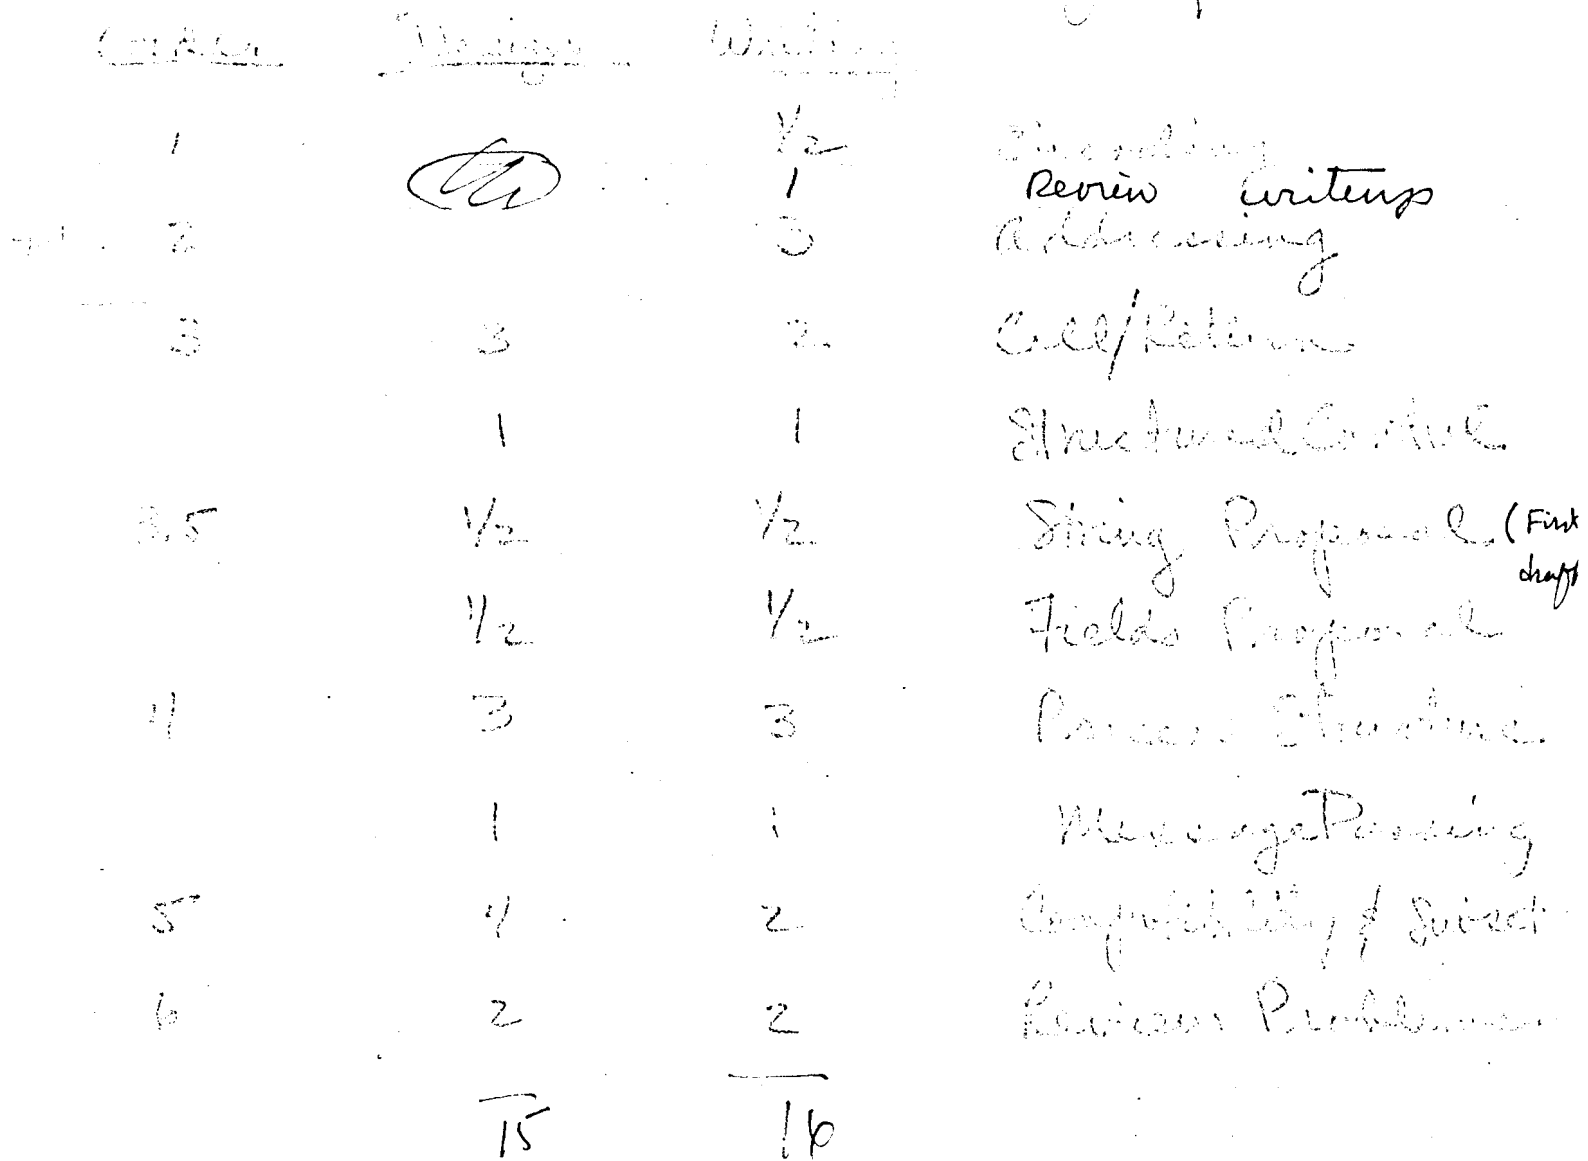 Order Design Writing
1 1/2 Encoding
1 Review writeups
2 3 Addressing
3 3 2 Call/Return
1 1 Structured Control
3.5 1/2 1/2 String Proposal (First
draft
1/2 1/2 Fields Proposal
4 3 3 Process Structure
1 1 Message Passing
5 4 2 Compatibility & Subset
6 2 2 Review Problems
15 16